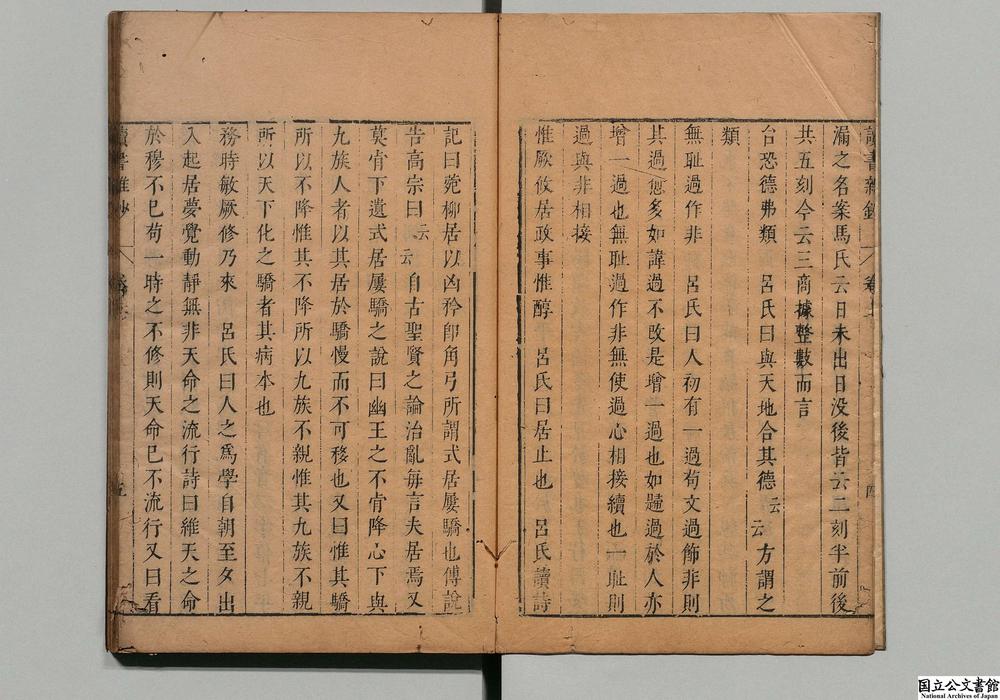 漏之名案馬氏云日未出日没後皆云二刻半前後
共五刻今云三商據整數而言
台恐德弗類　呂氏曰與天地合其德云云方謂之
類
無耻過作非　呂氏曰人初有一過苟文過飾非則
其過愈多如諱過不改是增一過也如遷過於人亦
增一過也無耻過作非無使過心相接續也一耻則
過與非相接
惟厥攸居政事惟醇　呂氏曰居止也　呂氏讀詩
記曰菀柳居以凶矜卽角弓所謂式居屢驕也傅說
告高宗曰云云自古聖賢之論治亂每言夫居焉又
莫肯下遺式居屢驕之說曰幽王之不肯降心下與
九族人者以其居於驕慢而不可移也又曰惟其驕
所以不降惟其不降所以九族不親惟其九族不親
所以天下化之驕者其病本也
務時敏厥修乃來　呂氏曰人之爲學自朝至夕出
入起居夢覺動靜無非天命之流行詩曰維天之命
於穆不已苟一時之不修則天命已不流行又曰看
五
国立公文書館
National Archives of Japan